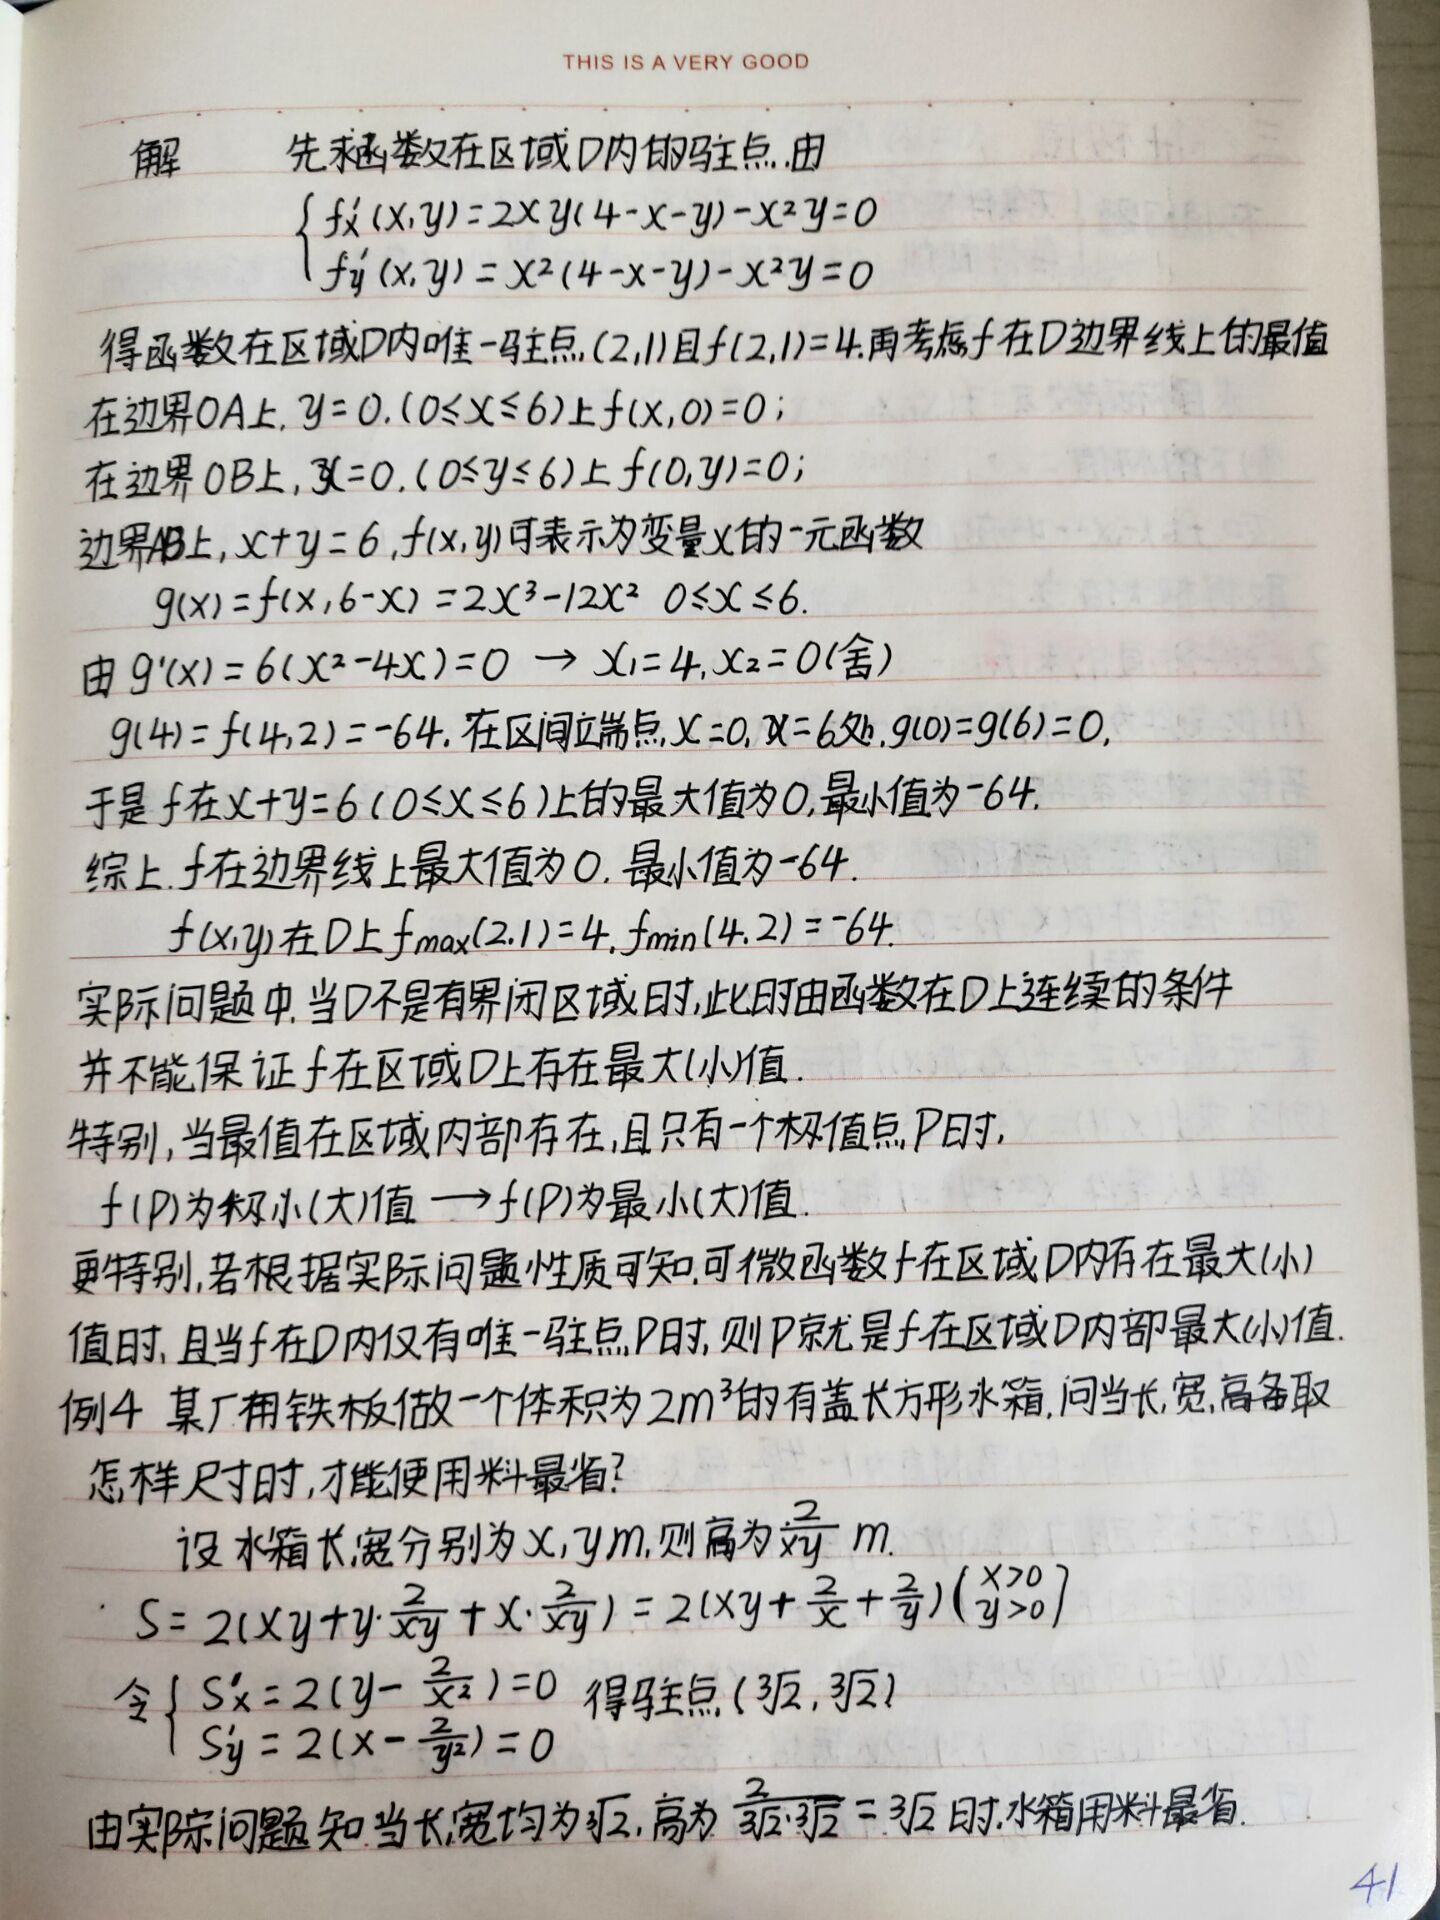 THIS IS A VERY GOOD
解 先求函数在区域D内的驻点.由
{ fx′(x,y)=2xy(4-x-y)-x²y=0
fy′(x,y)=x²(4-x-y)-x²y=0
得函数在区域D内唯一驻点(2,1)且f(2,1)=4.再考虑f在D边界线上的最值
在边界OA上,y=0.(0≤x≤6)上f(x,0)=0;
在边界OB上,x=0.(0≤y≤6)上f(0,y)=0;
边界AB上,x+y=6,f(x,y)可表示为变量x的一元函数
g(x)=f(x,6-x)=2x³-12x² 0≤x≤6.
由g'(x)=6(x²-4x)=0 → x₁=4,x₂=0(舍)
g(4)=f(4,2)=-64.在区间立端点x=0,x=6处,g(0)=g(6)=0,
于是f在x+y=6(0≤x≤6)上的最大值为0,最小值为-64.
综上.f在边界线上最大值为0.最小值为-64.
f(x,y)在D上fmax(2.1)=4.fmin(4.2)=-64.
实际问题中.当D不是有界闭区域时,此时由函数在D上连续的条件
并不能保证f在区域D上存在最大(小)值.
特别,当最值在区域内部存在,且只有一个极值点P时,
f(P)为极小(大)值→f(P)为最小(大)值.
更特别,若根据实际问题性质可知,可微函数f在区域D内存在最大(小)
值时,且当f在D内仅有唯一驻点P时,则P就是f在区域D内部最大(小)值.
例4 某厂用铁板做一个体积为2m³的有盖长方形水箱.问当长,宽,高各取
怎样尺寸时,才能使用料最省?
设水箱长,宽分别为x,ym,则高为2/xy m.
S=2(xy+y·2/xy+x·2/xy)=2(xy+2/x+2/y)(x>0 y>0)
令{ S′x=2(y-2/x²)=0 得驻点(³√2,³√2)
S′y=2(x-2/y²)=0
由实际问题知.当长,宽均为³√2,高为2/(³√2·³√2)=³√2时.水箱用料最省.
41